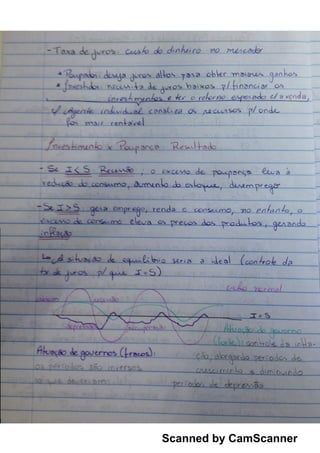 - Taxa de juros: custo do dinheiro no mercado
* Poupador: deseja juros altos para obter maiores ganhos
* Investidor: necessita de juros baixos p/ financiar os
investimentos e ter o retorno esperado c/ a venda,
↳ Agente individual canaliza os recursos p/ onde
for mais rentável
Investimento x Poupança Resultado
- Se I < S Recessão, o excesso de poupança leva à
redução do consumo, aumento do estoque, desemprego
- Se I > S gera emprego, renda e consumo, no entanto, o
excesso de consumo eleva os preços dos produtos, gerando
inflação
↳ A situação de equilíbrio seria a ideal (controle da
tx de juros p/ que I = S)
ciclo normal
I = S
Atuação do governo
(forte): controle da infla-
Atuação de governos (fracos):
ção, alongando períodos de
os períodos são inversos
crescimento e diminuindo
períodos de depressão
Scanned by CamScanner